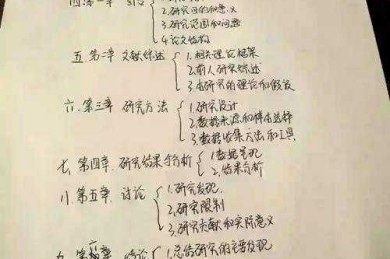 2.研究目的和意义
3.研究范围和问题
4.论文结构
五.第一章 文献综述 1.相关理论框架
2.前人研究综述
3.本研究的理论和假设
六.第三章 研究方法 1.研究设计
2.数据来源和样本选择
3.数据收集方法和工具
七.第四章.研究结果与分析 1.数据呈现
2.结果分析
八.第五章.讨论 1.研究发现
2.研究限制
3.研究贡献和实际意义
1.总结研究的主要发现